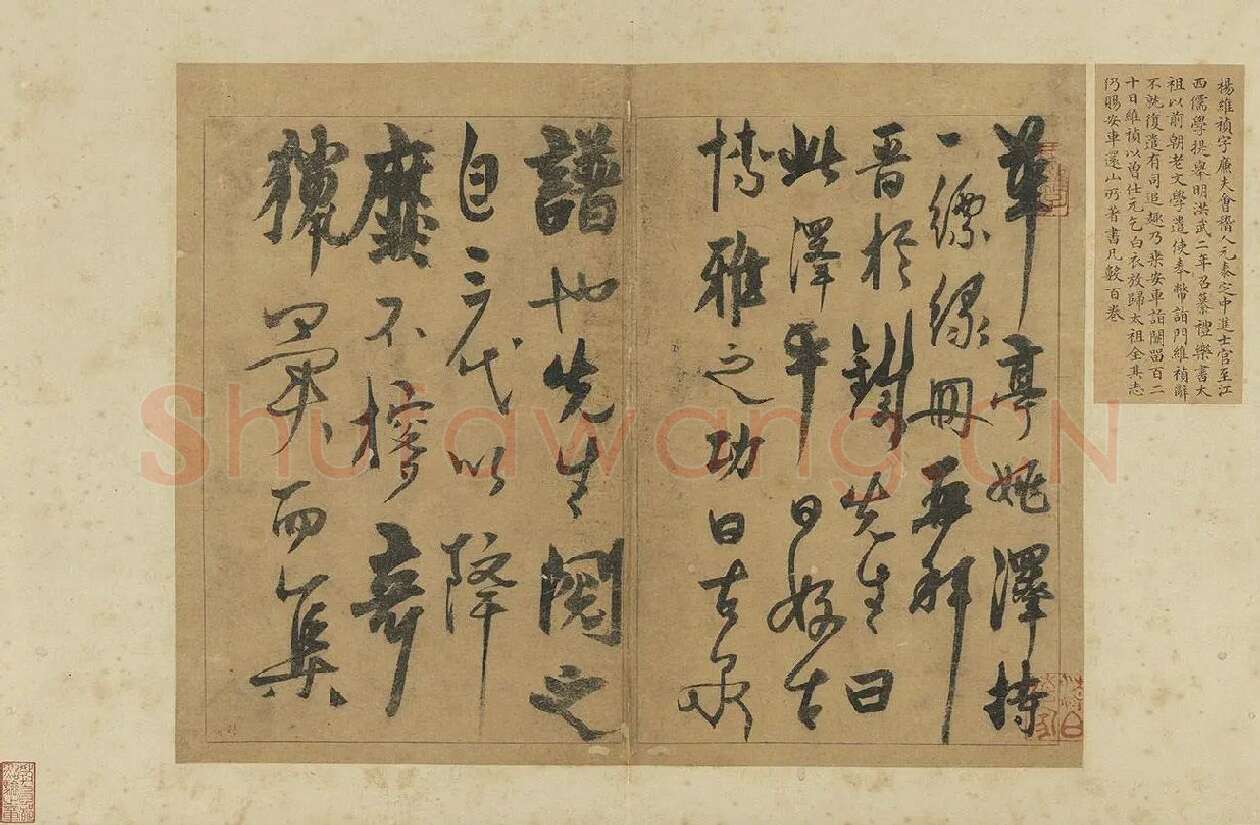 楊維禎字廉夫會稽人元泰定中進士官至江
西儒學提舉明洪武二年召纂禮樂書大
祖以前朝老文學遣使奉幣詣門維禎辭
不就復遣有司追趣乃乘安車詣闕留百二
十日維禎以曾仕元乞白衣放歸太祖全其志
仍賜安車還山所著書凡數百卷
華亭姚澤持
一縹緣冊再拜
晉於鐵先生曰
此澤平日好古
博雅之功曰古泉
譜也先生閱之
自三代以降
靡不奇
獵異而集
Shufawang.CN